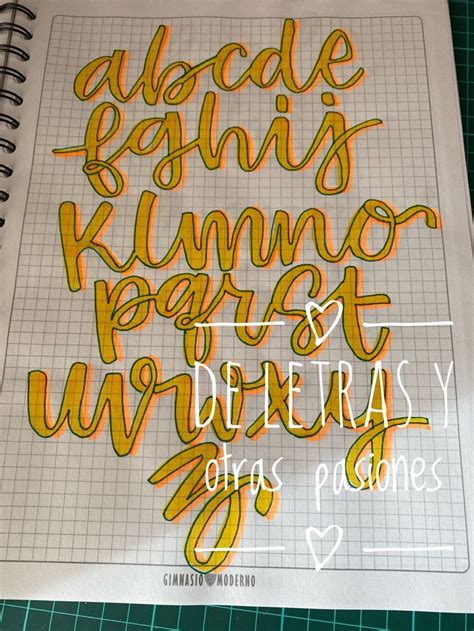 abcde
fghij
klmno
pqrst
uvwxy
z.
DE LETRAS Y
otras pasiones
GIMNASIO MODERNO